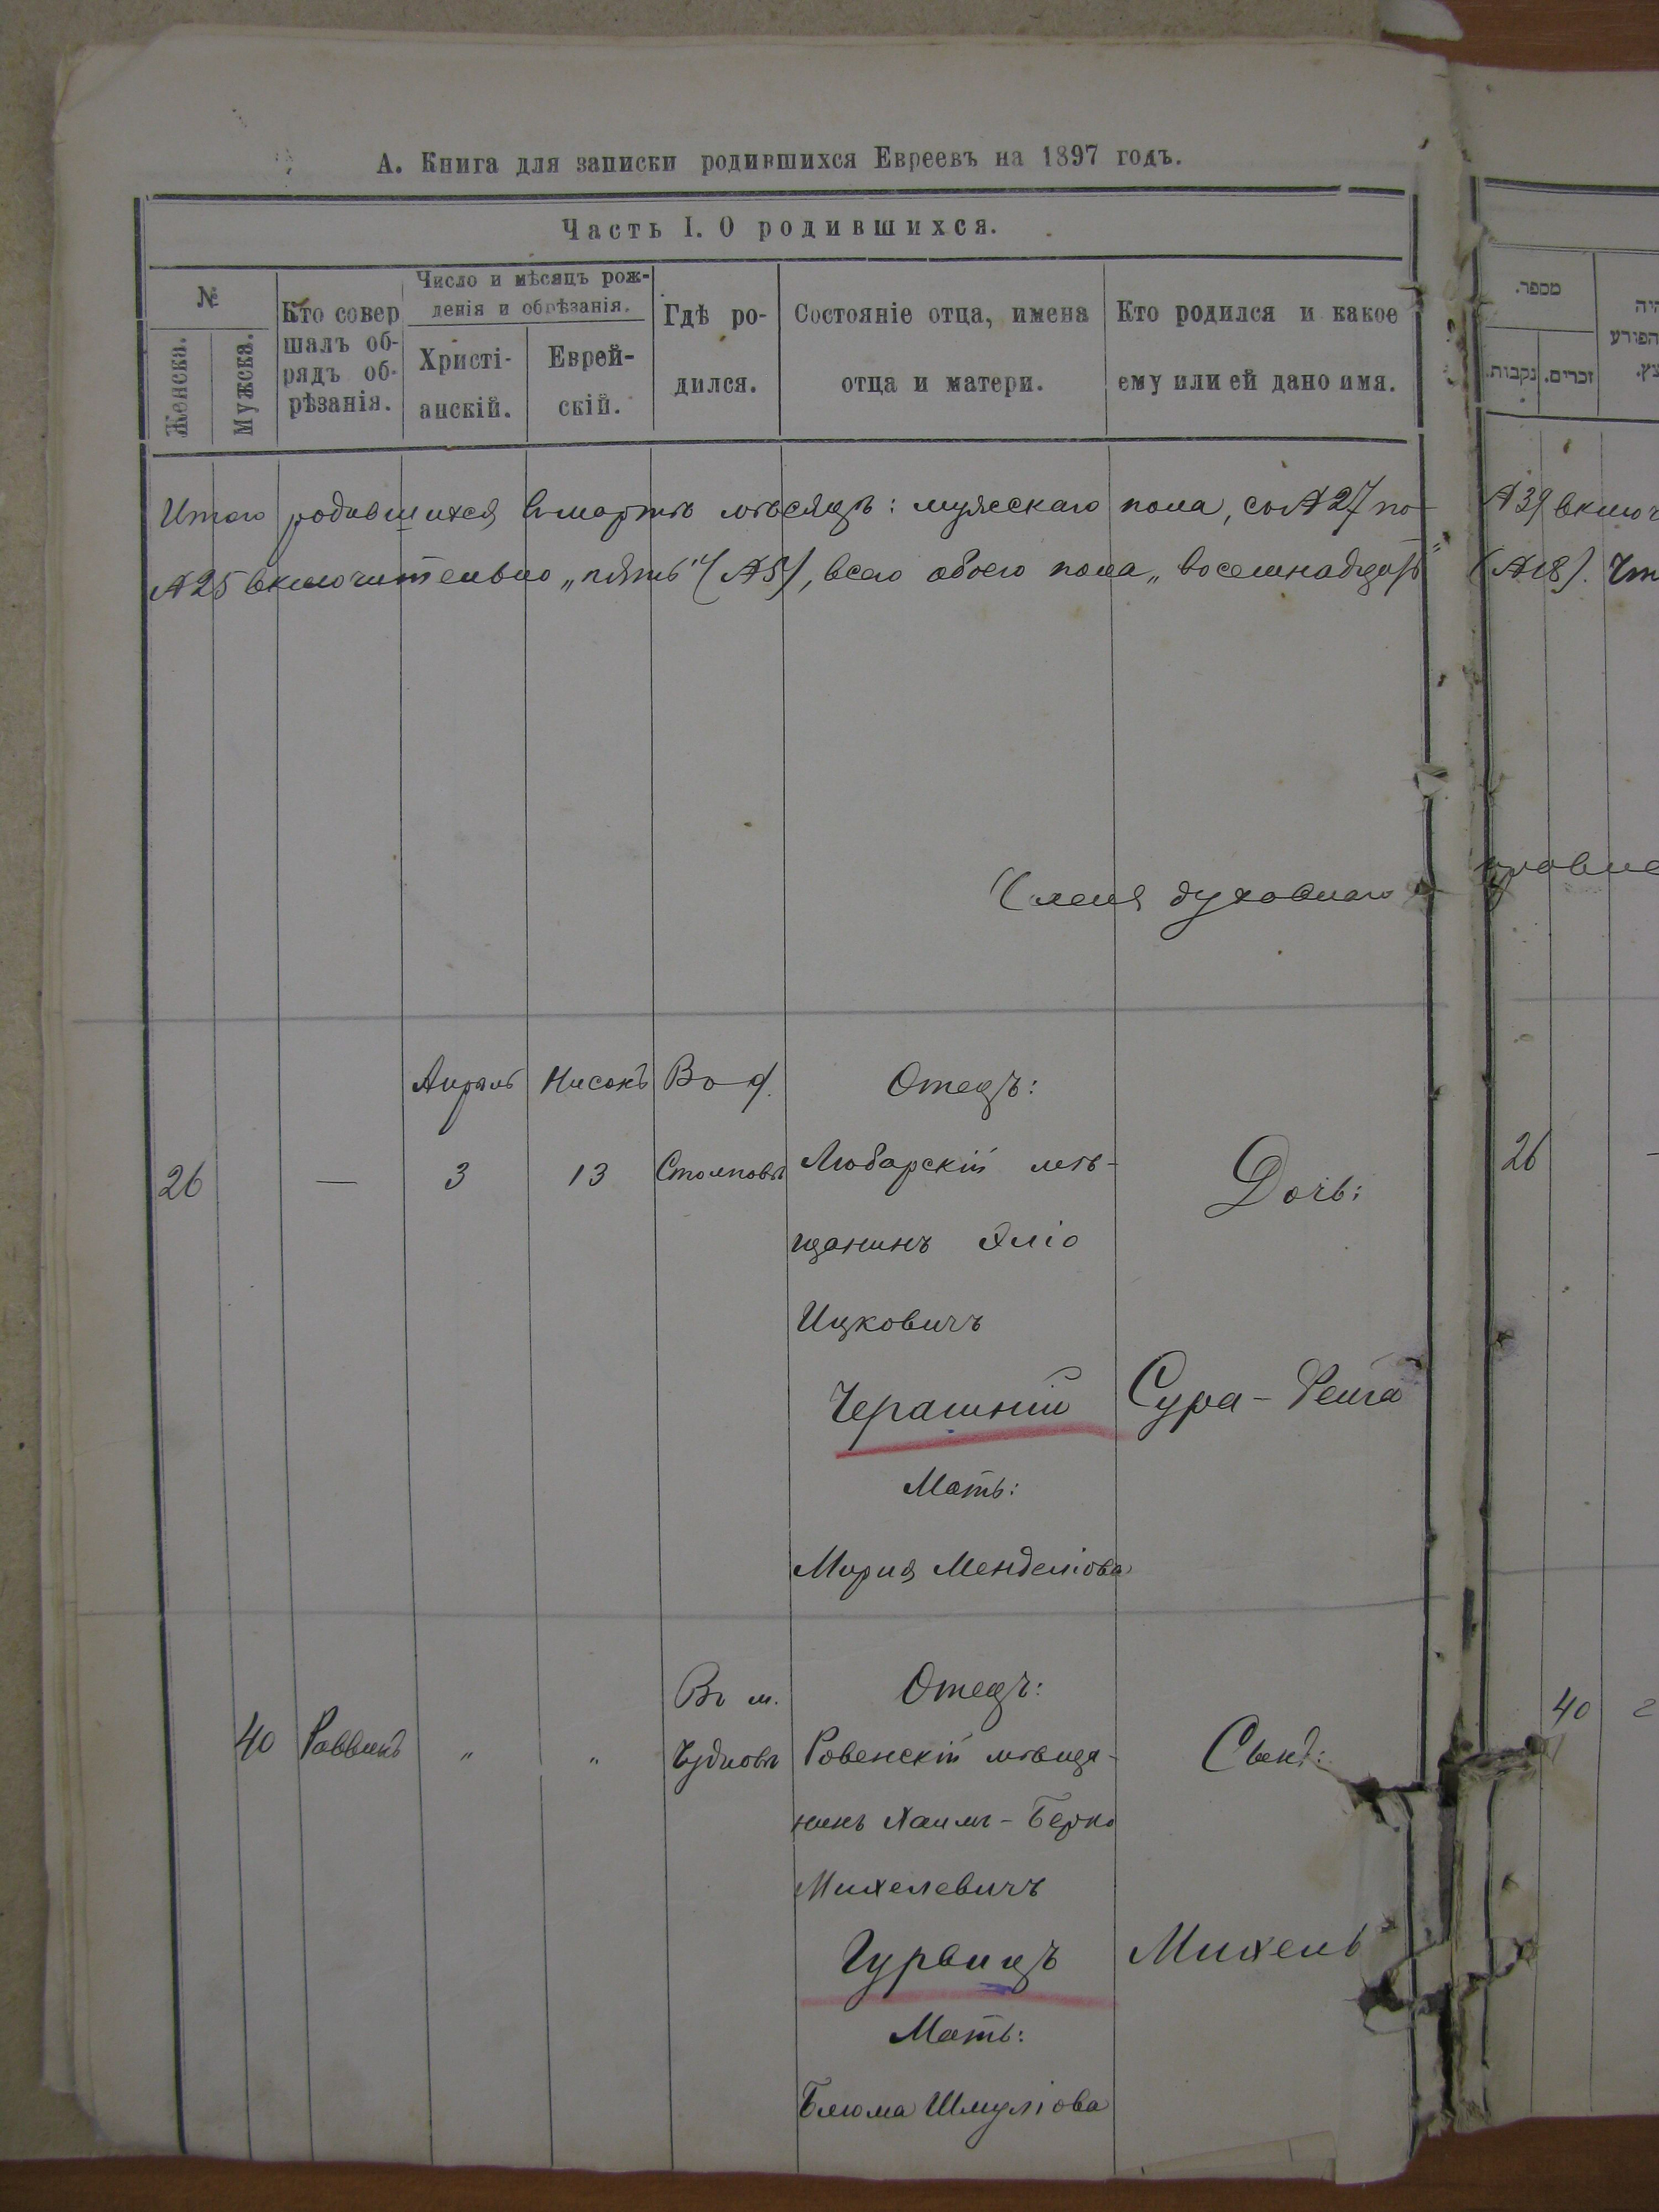 А. Книга для записки родившихся Евреевъ на 1897 годъ.
Часть I. О родившихся.
№
Женска.
Мужска.
Кто совер
шалъ об-
рядъ об-
рѣзанія.
Число и мѣсяцъ рож-
денія и обрѣзанія.
Христі-
анскій.
Еврей-
скій.
Гдѣ ро-
дился.
Состояніе отца, имена
отца и матери.
Кто родился и какое
ему или ей дано имя.
מספר.
נקבות.
זכרים.
Итого родившихся въ мартѣ мѣсяцѣ: мужескаго пола, съ №27 по
№39 включ
№25 включительно „пять" (№5), всего обоего пола „восемнадцать"
(№18).
Члена духовнаго
правле
26
—
Апрѣль
3
Нисонъ
13
Въ
Столповѣ
Отецъ:
Любарскій мѣ-
щанинъ Эліо
Ицковичъ
Черашній
Мать:
Мирия Менделіова
Дочь:
Сура-Рейза
26
40
Раввинъ
"
"
Въ м.
Чудновѣ
Отецъ:
Ровенскій мѣща-
нинъ Хаимъ-Берко
Михелевичъ
Гурвицъ
Мать:
Блюма Шмуліова
Сынъ:
Михель
40